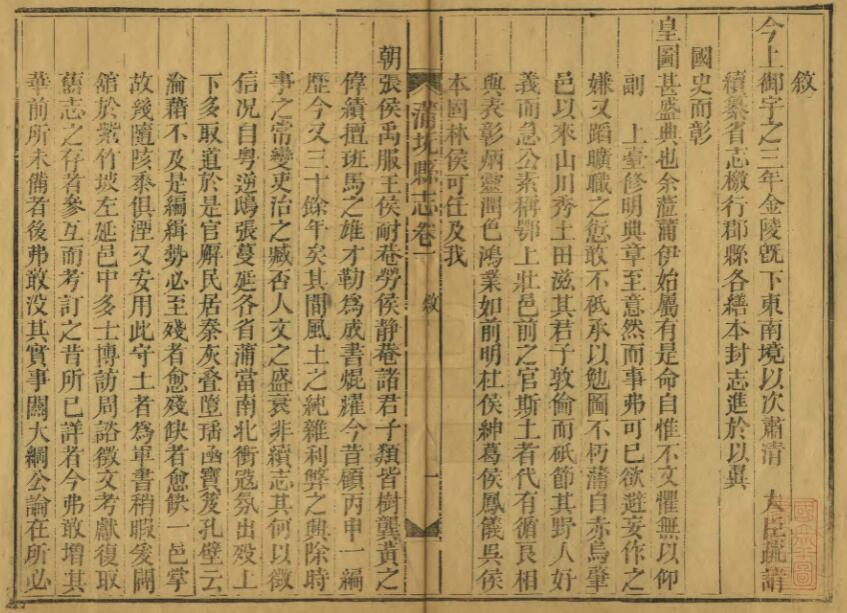 敘
今上御宇之三年金陵旣下東南境以次肅清 大臣疏請
續纂省志檄行郡縣各繕本封志進於以異
國史而彰
皇圖甚盛典也余蒞蒲伊始屬有是命自惟不文懼無以仰
副 上臺修明典章至意然而事弗可已欲避妄作之
嫌又蹈曠職之愆敢不祇承以勉圖不朽蒲自赤烏肇
邑以來山川秀土田滋其君子敦倫而砥節其野人好
義而急公素稱鄂上壯邑前之官斯土者代有循良相
與表彰炳靈潤色鴻業如前明杜侯紳葛侯鳳儀吳侯
本固林侯可任及我
蒲圻縣志卷一 敘 一
朝張侯禹服王侯耐菴勞侯静菴諸君子類皆樹龔黃之
偉績擅班馬之雄才勒爲成書焜燿今昔顧丙申一編
歷今又三十餘年矣其間風土之純雜利弊之興除時
事之常變吏治之臧否人文之盛衰非續志其何以徵
信况自粵逆鴟張蔓延各省蒲當南北衝寇氛出沒上
下多取道於是官廨民居秦灰叠墮瑤函寶笈孔壁云
淪藉不及是編緝勢必至殘者愈殘缺者愈缺一邑掌
故幾隨陔黍俱湮又安用此守土者爲軍書稍暇爰闢
舘於紫竹坡左延邑中多士博訪周諮徵文考獻復取
舊志之存者參互而考訂之昔所已詳者今弗敢增其
華前所未備者後弗敢没其實事關大綱公論在所必